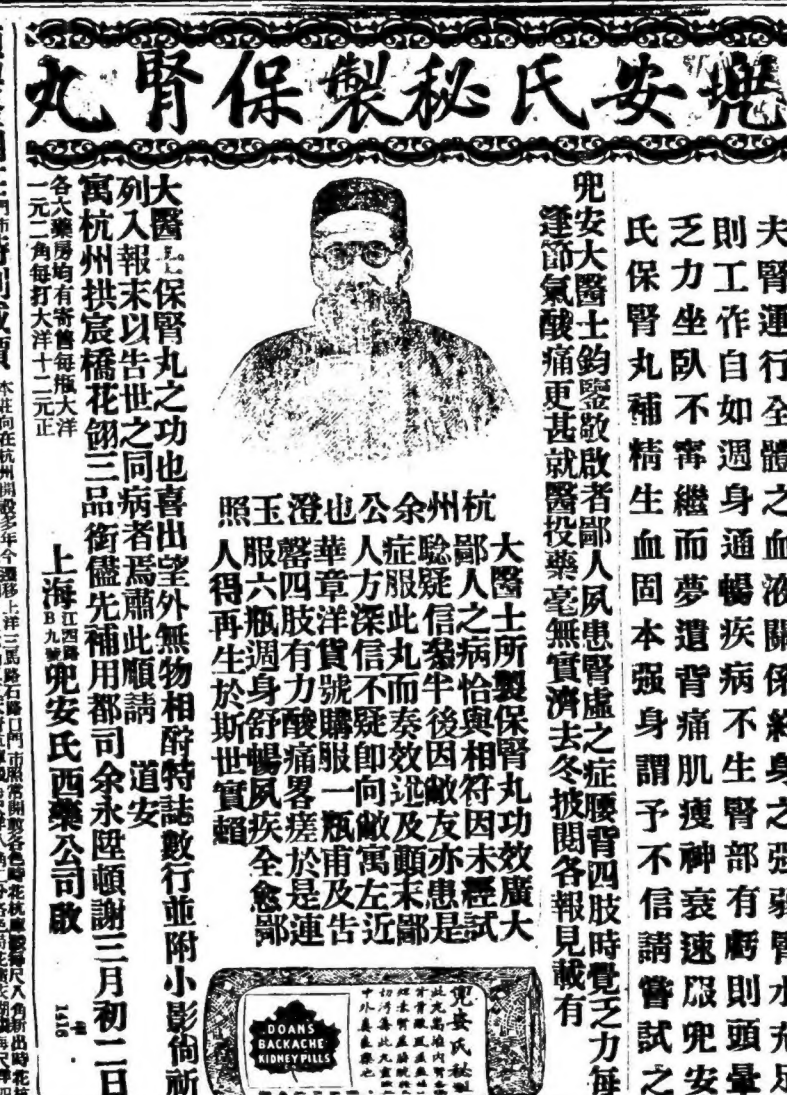 兜安氏秘製保腎丸
夫腎運行全體之血液關係終身之强弱腎水充足
則工作自如週身通暢疾病不生腎部有虧則頭暈
乏力坐臥不寗繼而夢遺背痛肌瘦神衰速服兜安
氏保腎丸補精生血固本强身謂予不信請嘗試之
兜安大醫士鈞鑒敬啟者鄙人夙患腎虛之症腰背四肢時覺乏力每
逢節氣酸痛更甚就醫投藥毫無實濟去冬披閱各報見載有
杭州余公也澄玉照
大醫士所製保腎丸功效廣大
鄙人之病恰與相符因未經試
驗疑信叅半後因敝友亦患是
症服此丸而奏效迅及顛末鄙
人方深信不疑卽向敝寓左近
華章洋貨號購服一瓶甫及告
罄四肢有力酸痛畧瘥於是連
服六瓶週身舒暢夙疾全愈鄙
人得再生於斯世實賴
大醫士保腎丸之功也喜出望外無物相酧特誌數行並附小影倘祈
列入報末以告世之同病者焉肅此順請 道安
寓杭州拱宸橋花翎三品銜儘先補用都司余永陞頓謝三月初二日
各大藥房均有寄售每瓶大洋
一元二角每打大洋十二元正
上海江西路B九號兜安氏西藥公司啟
1416
兜安氏秘製
DOANS
BACKACHE
KIDNEY PILLS